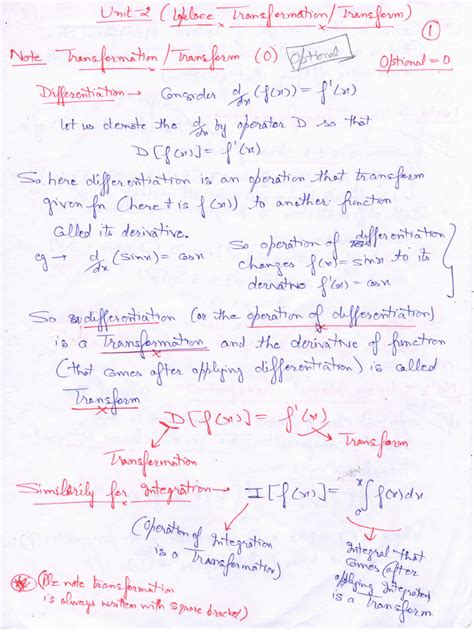 Unit-2 (Laplace Transformation/Transform)
①
Note Transformation/Transform (O) Optional Optional = O
Differentiation → Consider d/dx (f(x)) = f'(x)
Let us denote the d/dx by operator D so that
D[f(x)] = f'(x)
So here differentiation is an operation that transform
given fn (here it is f(x)) to another function
called its derivative.
eg → d/dx (sinx) = cosx
So operation of differentiation
changes f(x) = sinx to its
derivative f'(x) = cosx
So differentiation (or the operation of differentiation)
is a Transformation and the derivative of function
(that comes after applying differentiation) is called
Transform
D[f(x)] = f'(x)
Transformation
Transform
Similarily for Integration → I[f(x)] = ∫₀ˣ f(x)dx
(Operation of Integration
is a Transformation)
Integral that
comes (after
applying Integration)
is a transform
(Ple note transformation
is always written with square bracket)